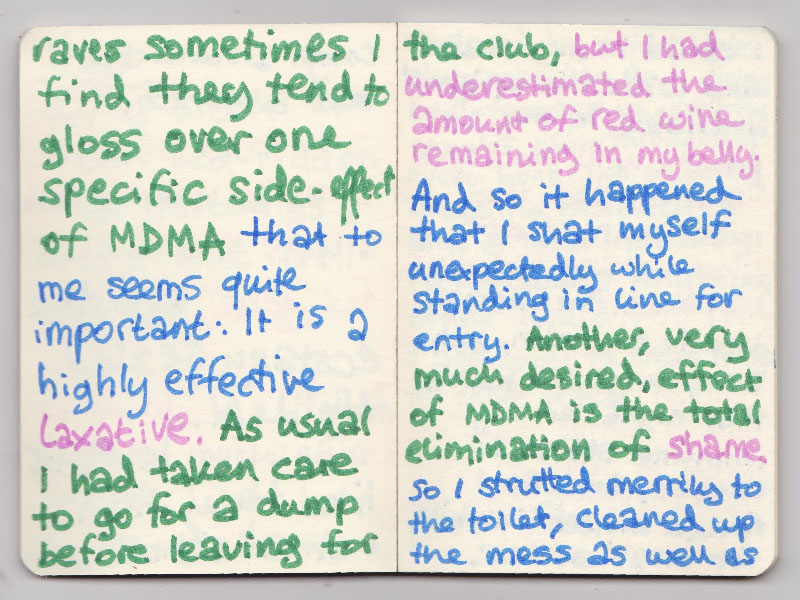 raves sometimes I
find they tend to
gloss over one
specific side-effect
of MDMA that to
me seems quite
important: It is a
highly effective
laxative. As usual
I had taken care
to go for a dump
before leaving for
the club, but I had
underestimated the
amount of red wine
remaining in my belly.
And so it happened
that I shat myself
unexpectedly while
standing in line for
entry. Another, very
much desired, effect
of MDMA is the total
elimination of shame
so I strutted merrily to
the toilet, cleaned up
the mess as well as